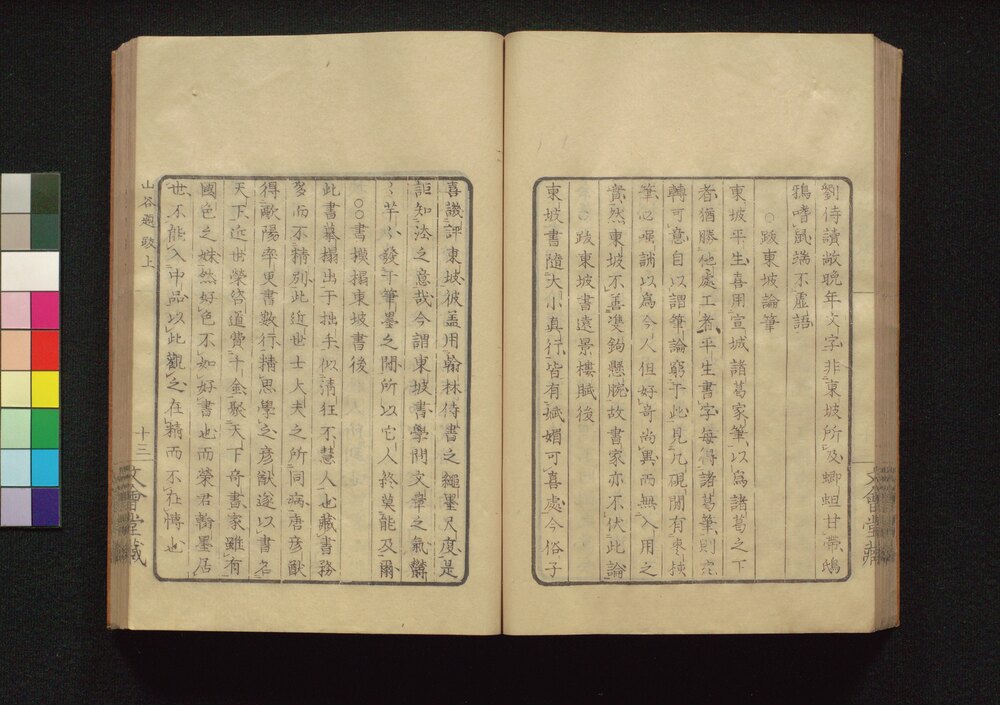 劉侍讀敞晚年文字非東坡所及蝍蛆甘帶鴟
鴉嗜鼠端不虛語
○跋東坡論筆
東坡平生喜用宣城諸葛家筆以為諸葛之下
者猶勝他處工者平生書字每得諸葛筆則宛
轉可意自以謂筆論窮于此見几硯間有棗核
筆必嗤誚以為今人但好奇尚異而無入用之
實然東坡不善雙鉤懸腕故書家亦不伏此論
○跋東坡書遠景樓賦後
東坡書隨大小真行皆有娬媚可喜處今俗子
喜譏評東坡彼蓋用翰林侍書之繩墨尺度是
詎知法之意哉今謂東坡書學問文章之氣鬱
〻芊〻發于筆墨之間所以它人終莫能及爾
○○書摸搨東坡書後
此書摹搨出于拙手似清狂不慧人也藏書務
多而不精別此近世士大夫之所同病唐彥猷
得歐陽率更書數行精思學之彥猷遂以書名
天下近世榮咨道費千金聚天下奇書家雖有
國色之姝然好色不如好書也而榮君翰墨居
世不能入中品以此觀之在精而不在博也
山谷題跋上
十三
文會堂藏
文會堂藏